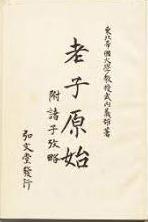 東北帝国大學教授武内義雄著
老子原始
附諸子攷略
弘文堂發行